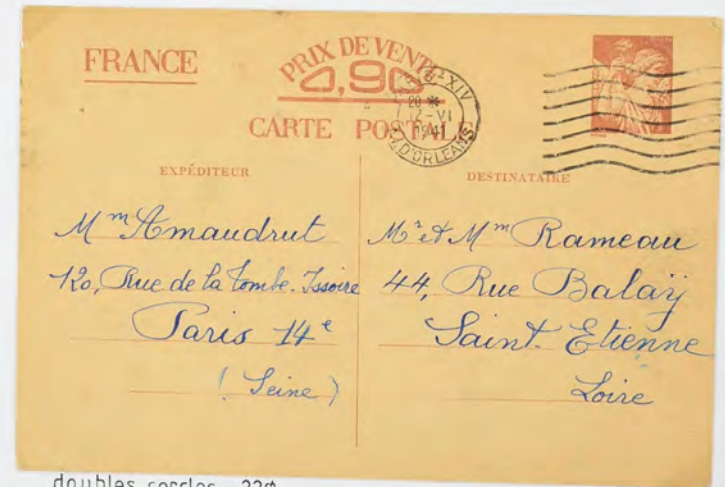 FRANCE
PRIX DE VENTE
0,90
CARTE POSTALE
XIV
20 *
12 - VI
1941
AV. D'ORLEANS
EXPÉDITEUR
DESTINATAIRE
Mᵐ Amaudrut
120, Rue de la Tombe-Issoire
Paris 14ᵉ
(Seine)
Mʳ et Mᵐ Rameau
44, Rue Balaÿ
Saint-Etienne
Loire
doubles cercles 22Ø